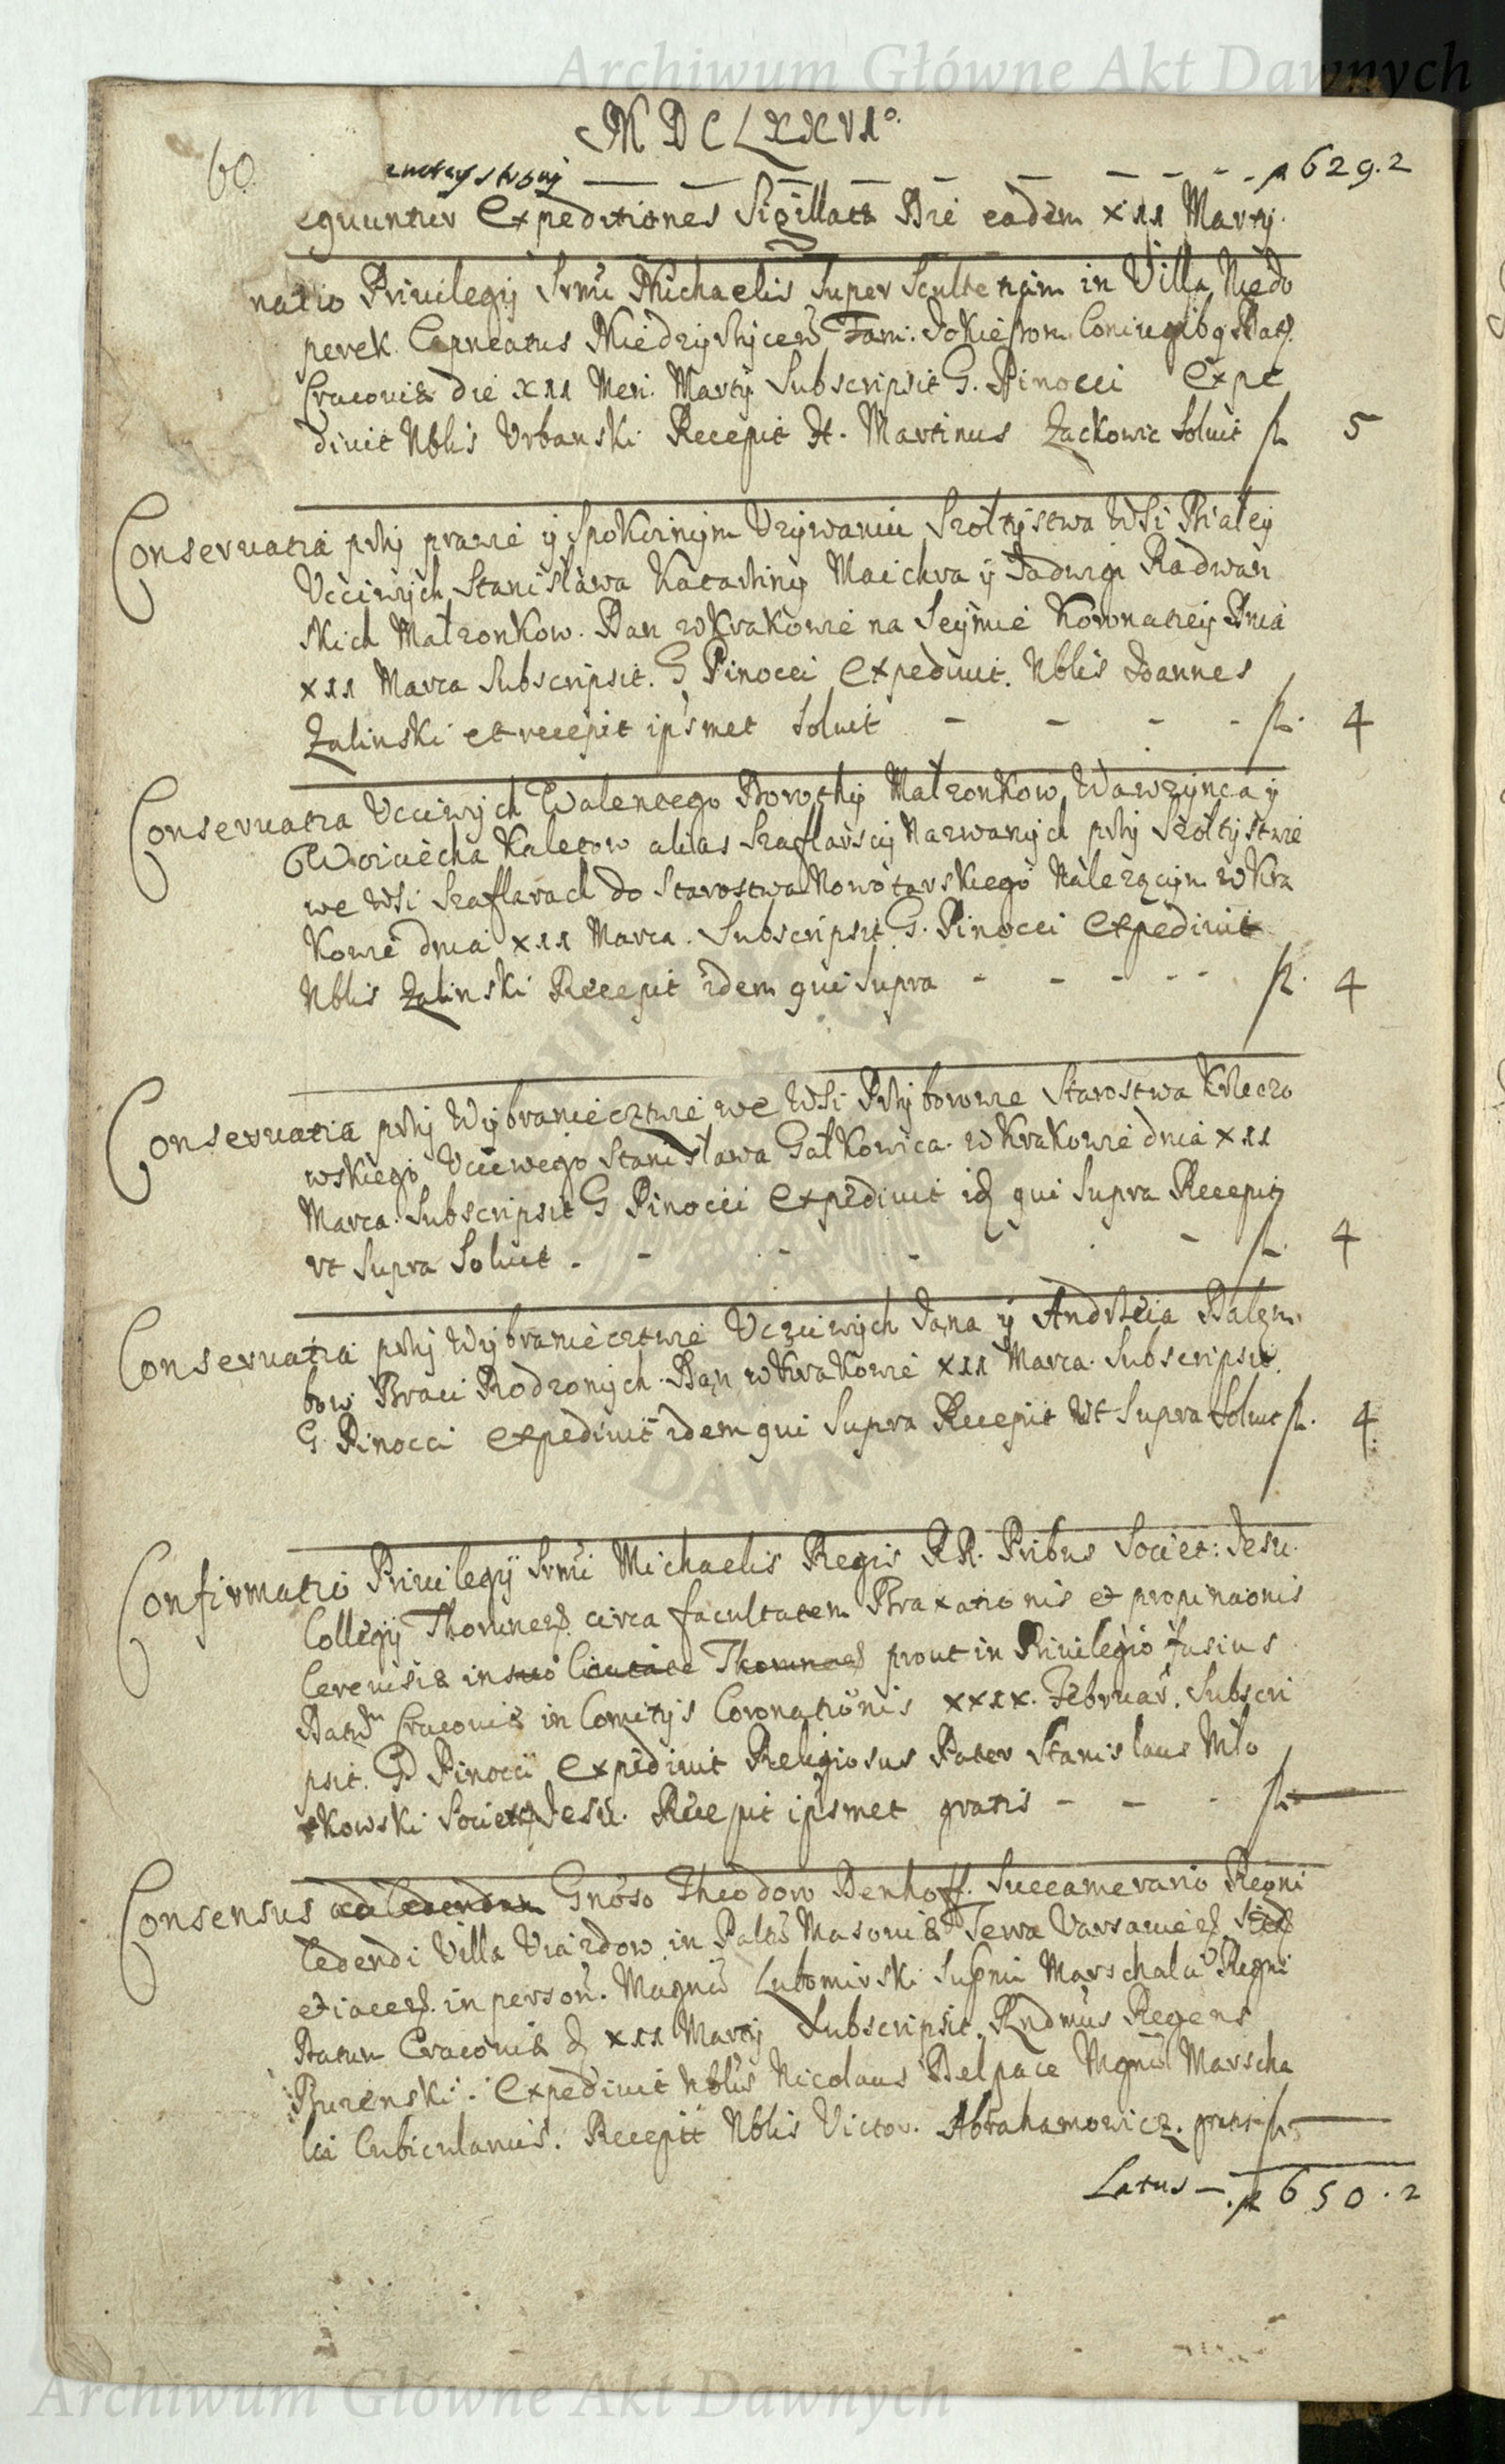 Archiwum Główne Akt Dawnych
MDCLXXVI°
60
z nocxey strony — — — — — — — 629.2
equuntur Expeditiones Sigillatæ Die eadem XII Martij.
natio Priuilegij Srmi Michaelis super Scultetiam in Villa Niedo
perek Capneatus Miedzyrzycen Fam: Conciugibq Dat.
Cracouiæ die XII Men. Martij Subscripsit G. Pinocci Expe
diuit Nblis Urbanski Recepit Martinus Zackowic Soluit fl. 5
Conseruatia przy prawie y spokoinym Vzywaniu Szołtystwa Wsi Białey
Vcciwych Stanisława Katarzyny Maichra y Jadwigi Radwan
skich Małzonkow. Dan w Krakowie na Seymie Koronatiey Dnia
XII Marca Subscripsit. G Pinocci Expediuit. Nblis Joannes
Zalinski et recepit ipsmet Soluit - - - - fl. 4
Conseruatia Vcciwych Walentego Małzonkow Wawrzynca y
Woiciecha Kaletow alias Szaflarscy Nazwanych przy Szołtystwie
we Wsi Szaflarach do Starostwa Nowotarskiego Nalezącym w Kra
kowie dnia XII Marca. Subscripsit G. Pinocci Expediuit
Nblis Zalinski Recepit idem qui supra - - - - - fl. 4
Conseruatia przy Wybraniecztwie we Wsi Przyborowie Starostwa Knieczo
wskiego Vcciwego Stanisława Gałkowica. w Krakowie dnia XII
Marca. Subscripsit G Pinocci Expediuit id qui supra Recepit
vt supra Soluit - - - - - - fl. 4
Conseruatia przy Wybraniecztwie Vczciwych Jana y Andrzeia Balem
bow Braci Rodzonych. Dan w Krakowie XII Marca. Subscripsit.
G. Pinocci expediuit idem qui supra Recepit Vt Supra Soluit fl. 4
Confirmatio Priuilegij Srmi Michaelis Regis RR. Pribus Societ: Jesu
Collegij Thorunen. circa facultatem Braxationis et propinaonis
Cereuisiæ in suo Ciuitate Thorunen prout in Priuilegio fusius
Datum Cracouiæ in Comitijs Coronationis XXIX. Februar. Subscri
psit. G Pinocci Expediuit Religiosus Pater Stanislaus Mło
kowski Societ Jesu. Recepit ipsmet gratis - - - fl.
Consensus ad Cedendum Gnoso Theodoro Denhoff. Succamerario Regni
Cedendi Villa Viazdow in Paltu Masouiæ Terra Varsauien
et iacen. in person. Magnci Lubomirski Supmi Marschalci Regni
Datum Cracouiæ d XII Martij Subscripsit. Rndmus Regens
Buzenski. Expediuit Nblis Nicolaus Delpace Mgnci Marscha
lci Cubicularius. Recepit Nblis Victor. Abrahamowicz. gratis fl.
Latus — . 650.2
Archiwum Główne Akt Dawnych